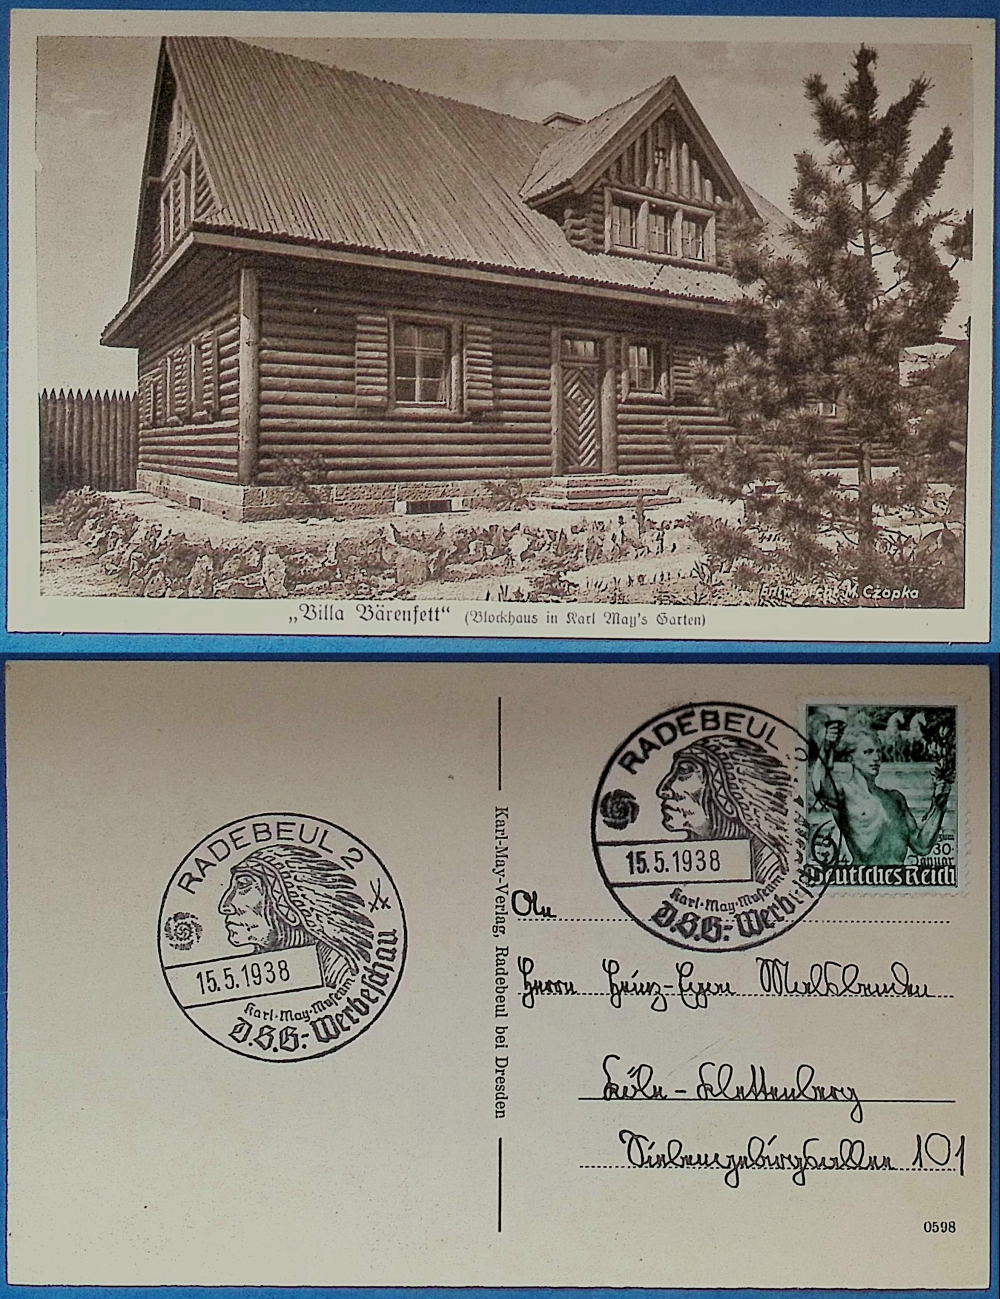 Entw. Archt. M. Czopka
„Villa Bärenfett“ (Blockhaus in Karl May's Garten)
RADEBEUL 2
15.5.1938
Karl-May-Museum
D.S.G.-Werbeschau
Karl-May-Verlag, Radebeul bei Dresden
RADEBEUL 2
15.5.1938
Karl-May-Museum
D.S.G.-Werbeschau
zum
30.
Januar
Deutsches Reich
An
Herrn Heinz-Egon
Köln-Klettenberg
Siebengebirgsallee 101
0598